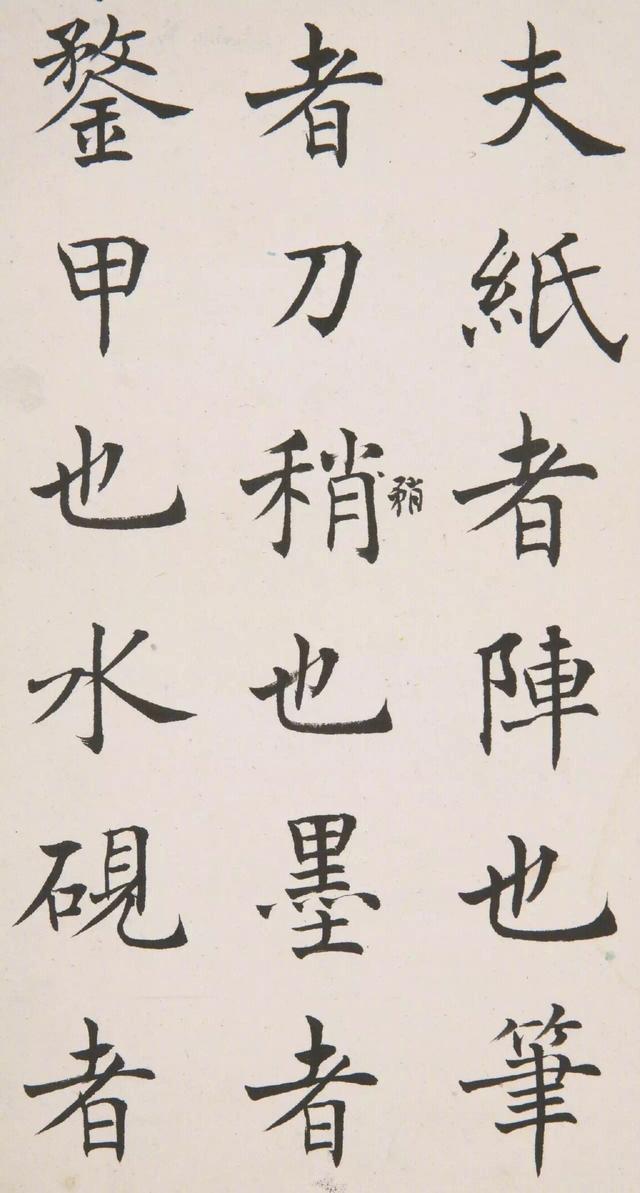 夫紙者陣也筆
者刀稍也墨者
矟
鍪甲也水硯者